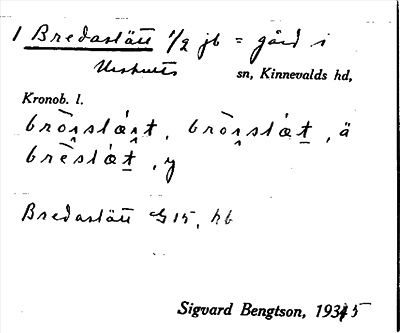 1 Bredaslätt 1/2 jb = gård i
Urshults sn, Kinnevalds hd,
Kronob. l.
brò̤ṇslát, brò̤ṇslæt, ä
brèslæt, y
Bredaslätt GS 15, hb
Sigvard Bengtson, 1935